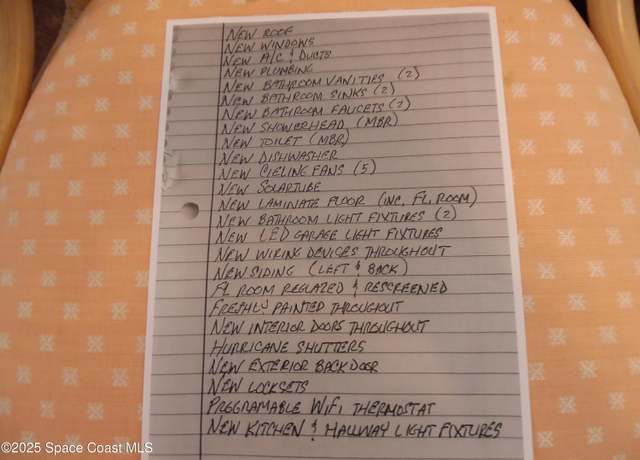 NEW ROOF
NEW WINDOWS
NEW A/C & DUCTS
NEW PLUMBING
NEW BATHROOM VANITIES (2)
NEW BATHROOM SINKS (2)
NEW BATHROOM FAUCETS (2)
NEW SHOWERHEAD (MBR)
NEW TOILET (MBR)
NEW DISHWASHER
NEW CIELING FANS (5)
NEW SOLARTUBE
NEW LAMINATE FLOOR (INC. FL. ROOM)
NEW BATHROOM LIGHT FIXTURES (2)
NEW LED GARAGE LIGHT FIXTURES
NEW WIRING DEVICES THROUGHOUT
NEW SIDING (LEFT & BACK)
FL ROOM REGLAZED & RESCREENED
FRESHLY PAINTED THROUGHOUT
NEW INTERIOR DOORS THROUGHOUT
HURRICANE SHUTTERS
NEW EXTERIOR BACK DOOR
NEW LOCKSETS
PROGRAMABLE WIFI THERMOSTAT
NEW KITCHEN & HALLWAY LIGHT FIXTURES
©2025 Space Coast MLS